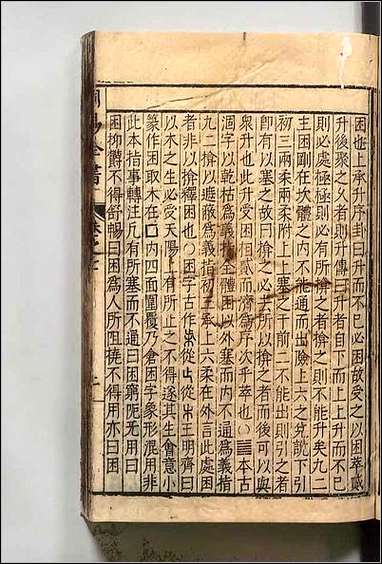 困也上承升序卦曰升而不已必困故受之以困萃或
升後聚之久者則升傳曰升者自下而上上升而不已
則必處極極則必有所揜之者揜之則不能升矣九二
主困剛在坎體之內不能通而出險上六之兌說下引
初三兩柔兩柔附上上塞之于前二不能出則引之者
卽有以塞之故曰揜之必去所以揜之者而後可以與
衆升也此升受以困貳而濟爲序次乎萃也○䷮本古
涸字以乾枯爲義指全體困以外塞而內不通爲義指
九二揜以遮蔽爲義指初三承上六柔在外言此處困
者非以揜釋困也○困字古作朱從止從木王明齊曰
以木之生必受天陽上有所止之不得遂其生會意小
篆作困取木在囗內四面圍覆乃倉困字象形混用非
此本指事轉注凡有所塞而不逼曰困窮阨无用曰
困抑鬱不得舒暢曰困爲人所阻撓不得用亦曰困
周易全書